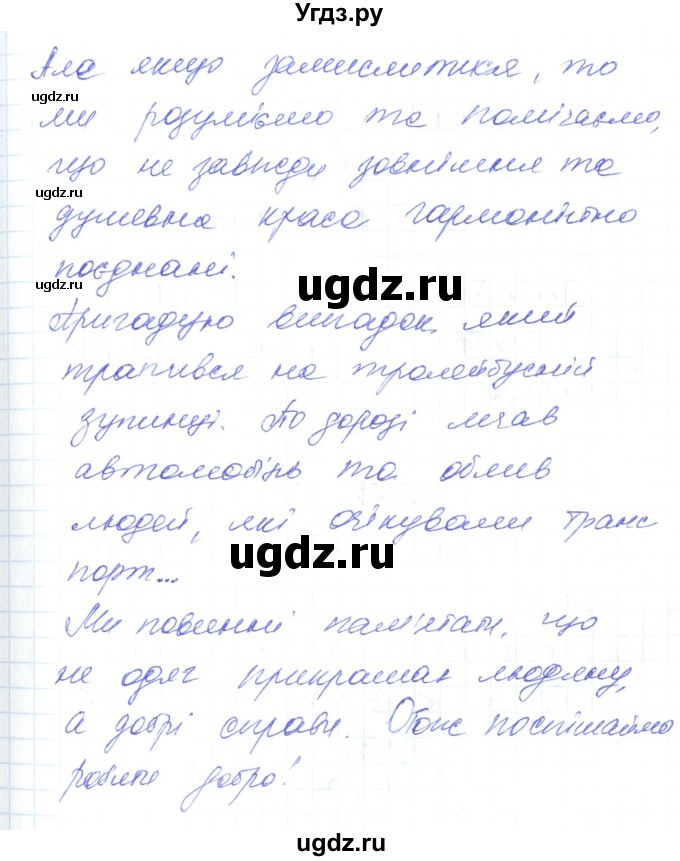 Угдз.ру
Але якщо замислитися, то
ugdz.ru
ми розуміємо та помічаємо,
що не завжди зовнішня та
ugdz.ru
душевна краса гармонійно
поєднані.
ugdz.ru
ugdz.ru
Пригадую випадок, який
трапився на тролейбусній
зупинці. По дорозі мчав
автомобіль та облив
людей, які очікували транс
ugdz.ru
порт...
Ми повинні пам'ятати, що
не одяг прикрашає людину,
а добрі справи. Отож поспішаймо
робити добро!
ugdz.ru